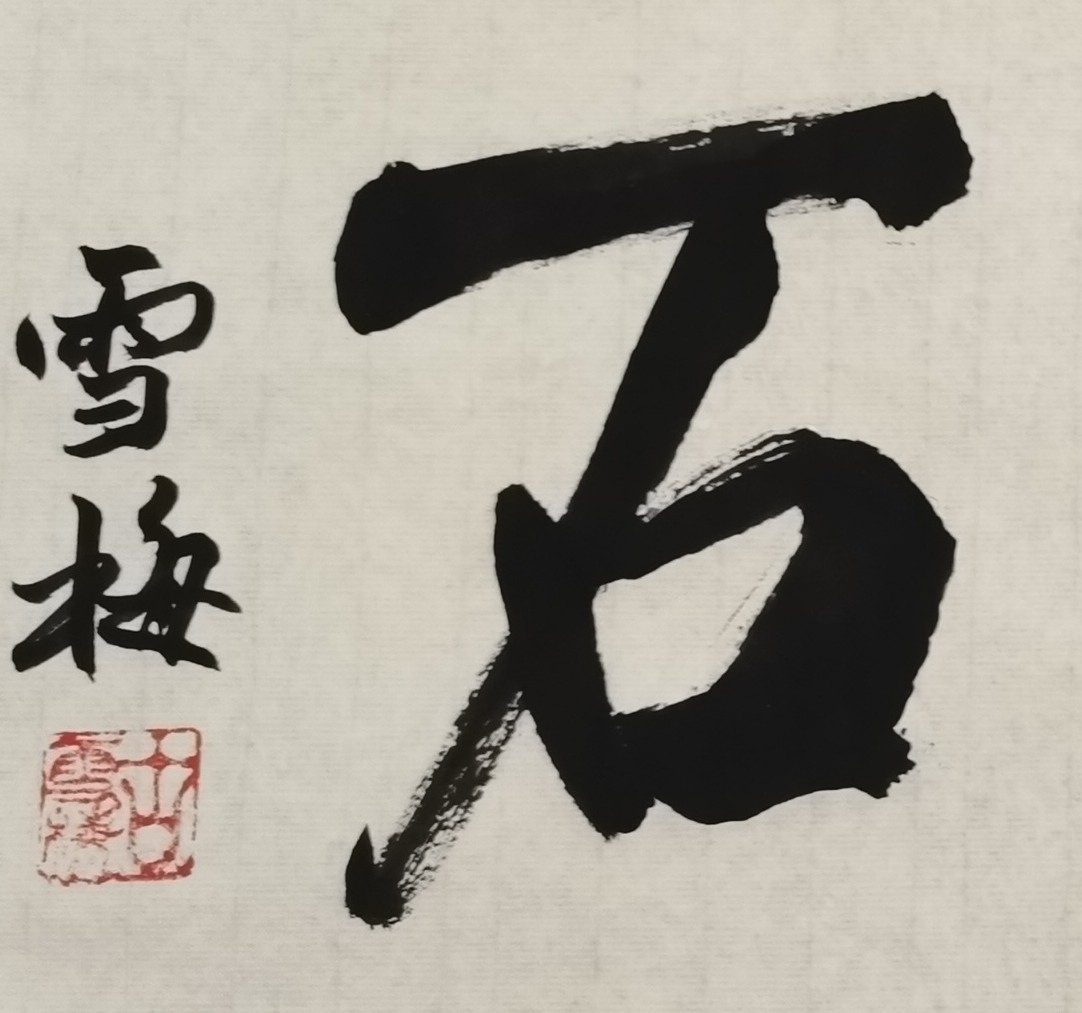 石
雪梅